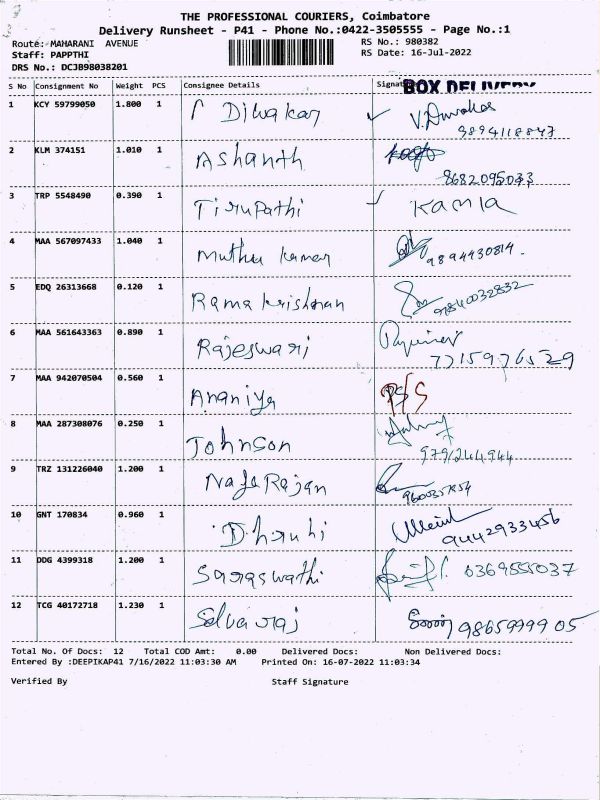 THE PROFESSIONAL COURIERS, Coimbatore
Delivery Runsheet - P41 - Phone No.:0422-3505555 - Page No.:1
Route: MAHARANI AVENUE RS No.: 980382
Staff: PAPPTHI RS Date: 16-Jul-2022
DRS No.: DCJB98038201
BOX DELIVERY
S No Consignment No Weight PCS Consignee Details
1 KCY 59799050 1.800 1 Diwakar
9894118847
2 KLM 374151 1.010 1 Ashanth
8682095033
3 TRP 5548490 0.390 1 Tirupathi Kamla
4 MAA 567097433 1.040 1 Muthu kumar 9894430814.
5 EDQ 26313668 0.120 1 Rama krishnan 9840032832
6 MAA 561643363 0.890 1 Rajeswari
7715976529
7 MAA 942070504 0.560 1 Ananiya
8 MAA 287308076 0.250 1 Johnson
9 TRZ 131226040 1.200 1 Naga Rajan
10 GNT 170834 0.960 1 Dhruhi
9442933456
11 DDG 4399318 1.200 1 Saraswathi 6369555037
12 TCG 40172718 1.230 1 Selva raj 9865999905
Total No. Of Docs: 12 Total COD Amt: 0.00 Delivered Docs: Non Delivered Docs:
Entered By :DEEPIKAP41 7/16/2022 11:03:30 AM Printed On: 16-07-2022 11:03:34
Verified By Staff Signature